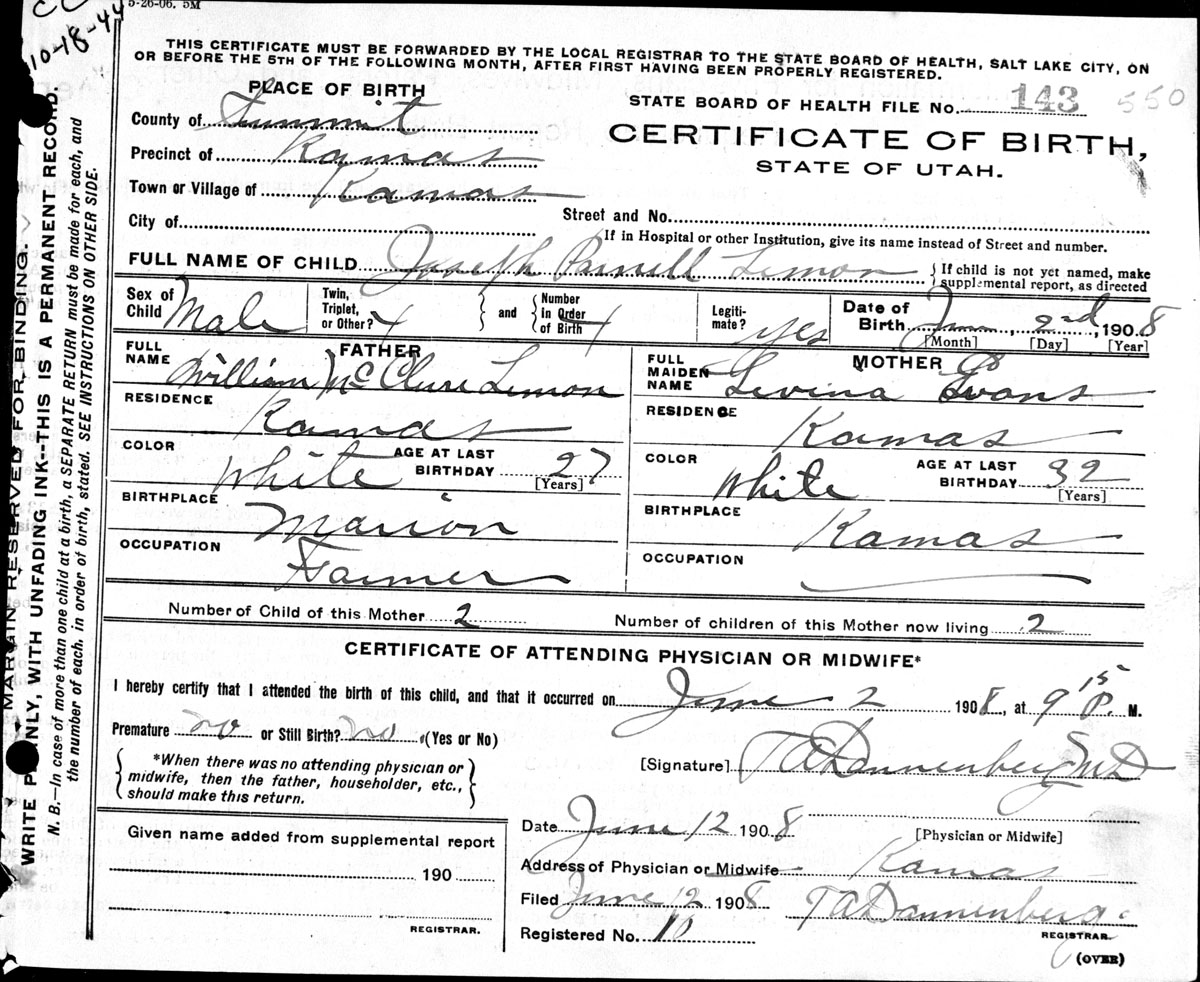 5-26-06. 5M
10-18-44
THIS CERTIFICATE MUST BE FORWARDED BY THE LOCAL REGISTRAR TO THE STATE BOARD OF HEALTH, SALT LAKE CITY, ON
OR BEFORE THE 5TH OF THE FOLLOWING MONTH, AFTER FIRST HAVING BEEN PROPERLY REGISTERED.
PLACE OF BIRTH
STATE BOARD OF HEALTH FILE No. 143 550
County of Summit
CERTIFICATE OF BIRTH,
STATE OF UTAH.
Precinct of Kamas
Town or Village of Kamas
City of
Street and No.
If in Hospital or other Institution, give its name instead of Street and number.
FULL NAME OF CHILD Joseph Parnell Lemon
If child is not yet named, make
supplemental report, as directed
Sex of Child Male Twin, Triplet, or Other? and Number in Order of Birth Legiti-mate? yes Date of Birth June, 2nd, 1908
[Month] [Day] [Year]
FATHER
FULL NAME William McClure Lemon
MOTHER
FULL MAIDEN NAME Levina Evans
RESIDENCE Kamas
RESIDENCE Kamas
COLOR White AGE AT LAST BIRTHDAY 27 [Years]
COLOR White AGE AT LAST BIRTHDAY 32 [Years]
BIRTHPLACE Marion
BIRTHPLACE Kamas
OCCUPATION Farmer
OCCUPATION
Number of Child of this Mother 2 Number of children of this Mother now living 2
CERTIFICATE OF ATTENDING PHYSICIAN OR MIDWIFE*
I hereby certify that I attended the birth of this child, and that it occurred on June 2 1908, at 9 15 P. M.
Premature no or Still Birth? no (Yes or No)
*When there was no attending physician or
midwife, then the father, householder, etc.,
should make this return.
[Signature] T A Dannenberg MD
[Physician or Midwife]
Given name added from supplemental report
190
REGISTRAR.
Date June 12 1908
Address of Physician or Midwife Kamas
Filed June 12 1908 T A Dannenberg
REGISTRAR
Registered No. 10
(OVER)
MARGIN RESERVED FOR BINDING.
WRITE PLAINLY, WITH UNFADING INK--THIS IS A PERMANENT RECORD.
N. B.—In case of more than one child at a birth, a SEPARATE RETURN must be made for each, and
the number of each, in order of birth, stated. SEE INSTRUCTIONS ON OTHER SIDE.